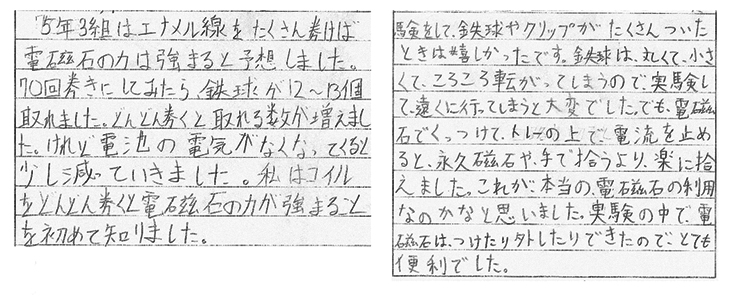 5年3組はエナメル線をたくさん巻けば
電磁石の力は強まると予想しました。
70回巻きにしてみたら、鉄球が12〜13個
取れました。どんどん巻くと取れる数が増えまし
た。けれど電池の電気がなくなってくると
少し減っていきました。私はコイル
をどんどん巻くと電磁石の力が強まること
を初めて知りました。
験をして、鉄球やクリップがたくさんついた
ときは嬉しかったです。鉄球は、丸くて、小さ
くて、ころころ転がってしまうので、実験し
て、遠くに行ってしまうと大変でした。でも、電磁
石でくっつけて、トレーの上で電流を止め
ると、永久磁石や、手で拾うより、楽に拾
えました。これが本当の、電磁石の利用
なのかなと思いました。実験の中で、電
磁石は、つけたり外したりできたので、とても
便利でした。